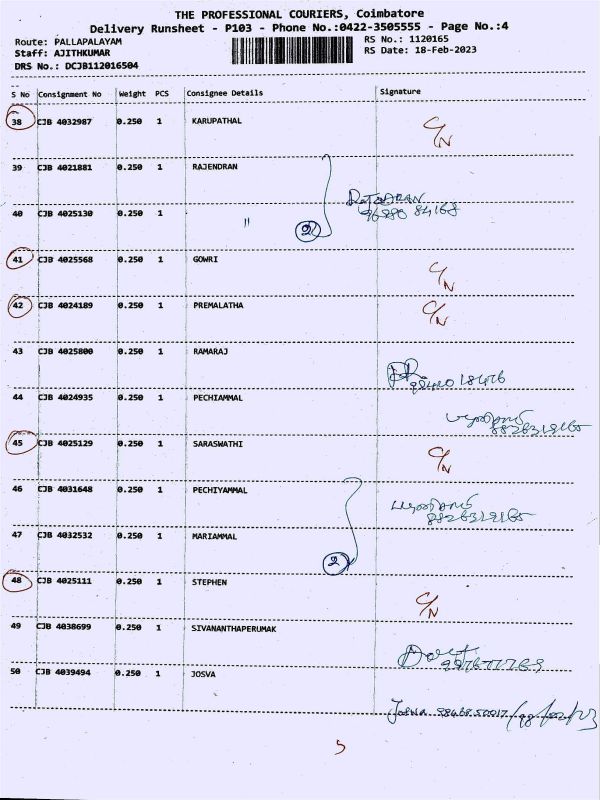 THE PROFESSIONAL COURIERS, Coimbatore
Delivery Runsheet - P103 - Phone No.:0422-3505555 - Page No.:4
Route: PALLAPALAYAM
RS No.: 1120165
Staff: AJITHKUMAR
RS Date: 18-Feb-2023
DRS No.: DCJB112016504
S No Consignment No Weight PCS Consignee Details Signature
38 CJB 4032987 0.250 1 KARUPATHAL C/N
39 CJB 4021881 0.250 1 RAJENDRAN
40 CJB 4025130 0.250 1 " 2
41 CJB 4025568 0.250 1 GOWRI C/N
42 CJB 4024189 0.250 1 PREMALATHA C/N
43 CJB 4025800 0.250 1 RAMARAJ
44 CJB 4024935 0.250 1 PECHIAMMAL
45 CJB 4025129 0.250 1 SARASWATHI C/N
46 CJB 4031648 0.250 1 PECHIYAMMAL
47 CJB 4032532 0.250 1 MARIAMMAL 2
48 CJB 4025111 0.250 1 STEPHEN C/N
49 CJB 4038699 0.250 1 SIVANANTHAPERUMAK
50 CJB 4039494 0.250 1 JOSVA
5